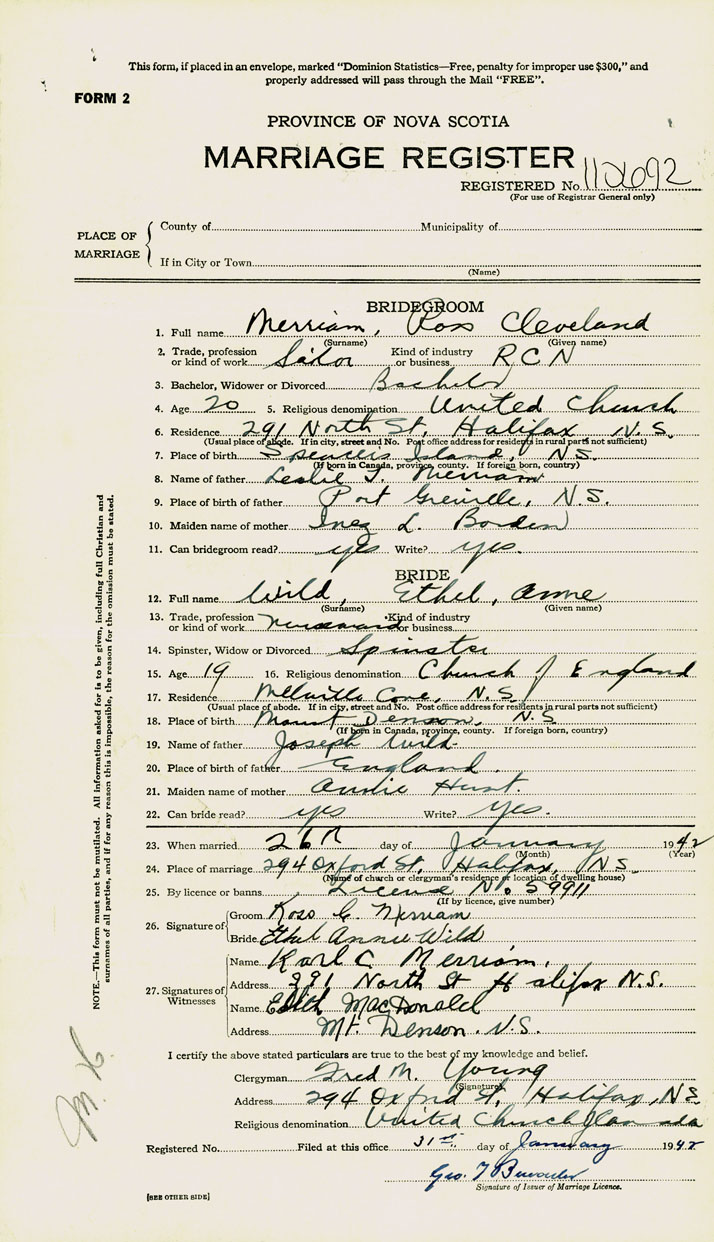 This form, if placed in an envelope, marked "Dominion Statistics—Free, penalty for improper use $300," and
properly addressed will pass through the Mail "FREE".
FORM 2
PROVINCE OF NOVA SCOTIA
MARRIAGE REGISTER
REGISTERED No.
(For use of Registrar General only)
PLACE OF MARRIAGE
County of Municipality of
If in City or Town
(Name)
BRIDEGROOM
1. Full name Merriam, Ross Cleveland
(Surname) (Given name)
2. Trade, profession or kind of work Sailor Kind of industry or business R C N
3. Bachelor, Widower or Divorced Bachelor
4. Age 20 5. Religious denomination United Church
6. Residence 291 North St, Halifax N.S.
(Usual place of abode. If in city, street and No. Post office address for residents in rural parts not sufficient)
7. Place of birth Spencer's Island, N.S.
(If born in Canada, province, county. If foreign born, country)
8. Name of father Leslie Merriam
9. Place of birth of father Port Greville, N.S.
10. Maiden name of mother Inez L. Borden
11. Can bridegroom read? yes Write? yes.
BRIDE
12. Full name Wild, Ethel, Anne
(Surname) (Given name)
13. Trade, profession or kind of work Kind of industry or business
14. Spinster, Widow or Divorced Spinster
15. Age 19 16. Religious denomination Church of England
17. Residence Melville Cove, N.S.
(Usual place of abode. If in city, street and No. Post office address for residents in rural parts not sufficient)
18. Place of birth Mount Denson, N.S
(If born in Canada, province, county. If foreign born, country)
19. Name of father Joseph Wild
20. Place of birth of father England.
21. Maiden name of mother Annie Hunt.
22. Can bride read? yes Write? yes.
23. When married 26th day of January 1942
(Month) (Year)
24. Place of marriage 294 Oxford St, Halifax, N.S.
(Name of church or clergyman's residence or location of dwelling house)
25. By licence or banns License No. 59911
(If by licence, give number)
26. Signature of Groom Ross C. Merriam
Bride Ethel Annie Wild
27. Signatures of Witnesses Name Karl C Merriam.
Address 291 North St Halifax N.S.
Name Edith MacDonald
Address Mt. Denson. N.S.
I certify the above stated particulars are true to the best of my knowledge and belief.
Clergyman Fred M. Young
(Signature)
Address 294 Oxford St, Halifax, N.S
Religious denomination United Church of Canada
Registered No. Filed at this office 31st day of January 1942
Geo.
Signature of Issuer of Marriage Licence.
[SEE OTHER SIDE]
NOTE.—This form must not be mutilated. All information asked for is to be given, including full Christian and
surnames of all parties, and if for any reason this is impossible, the reason for the omission must be stated.